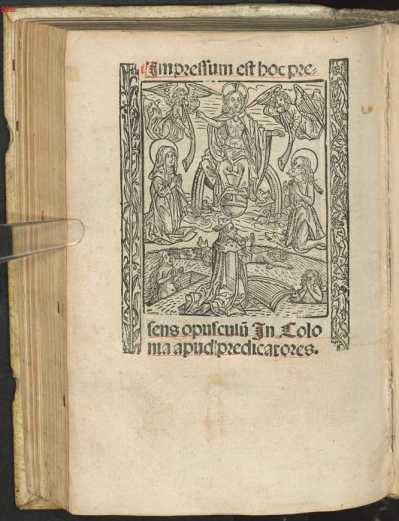 Impressum est hoc pre-
sens opusculū In Colo
nia apud predicatores.